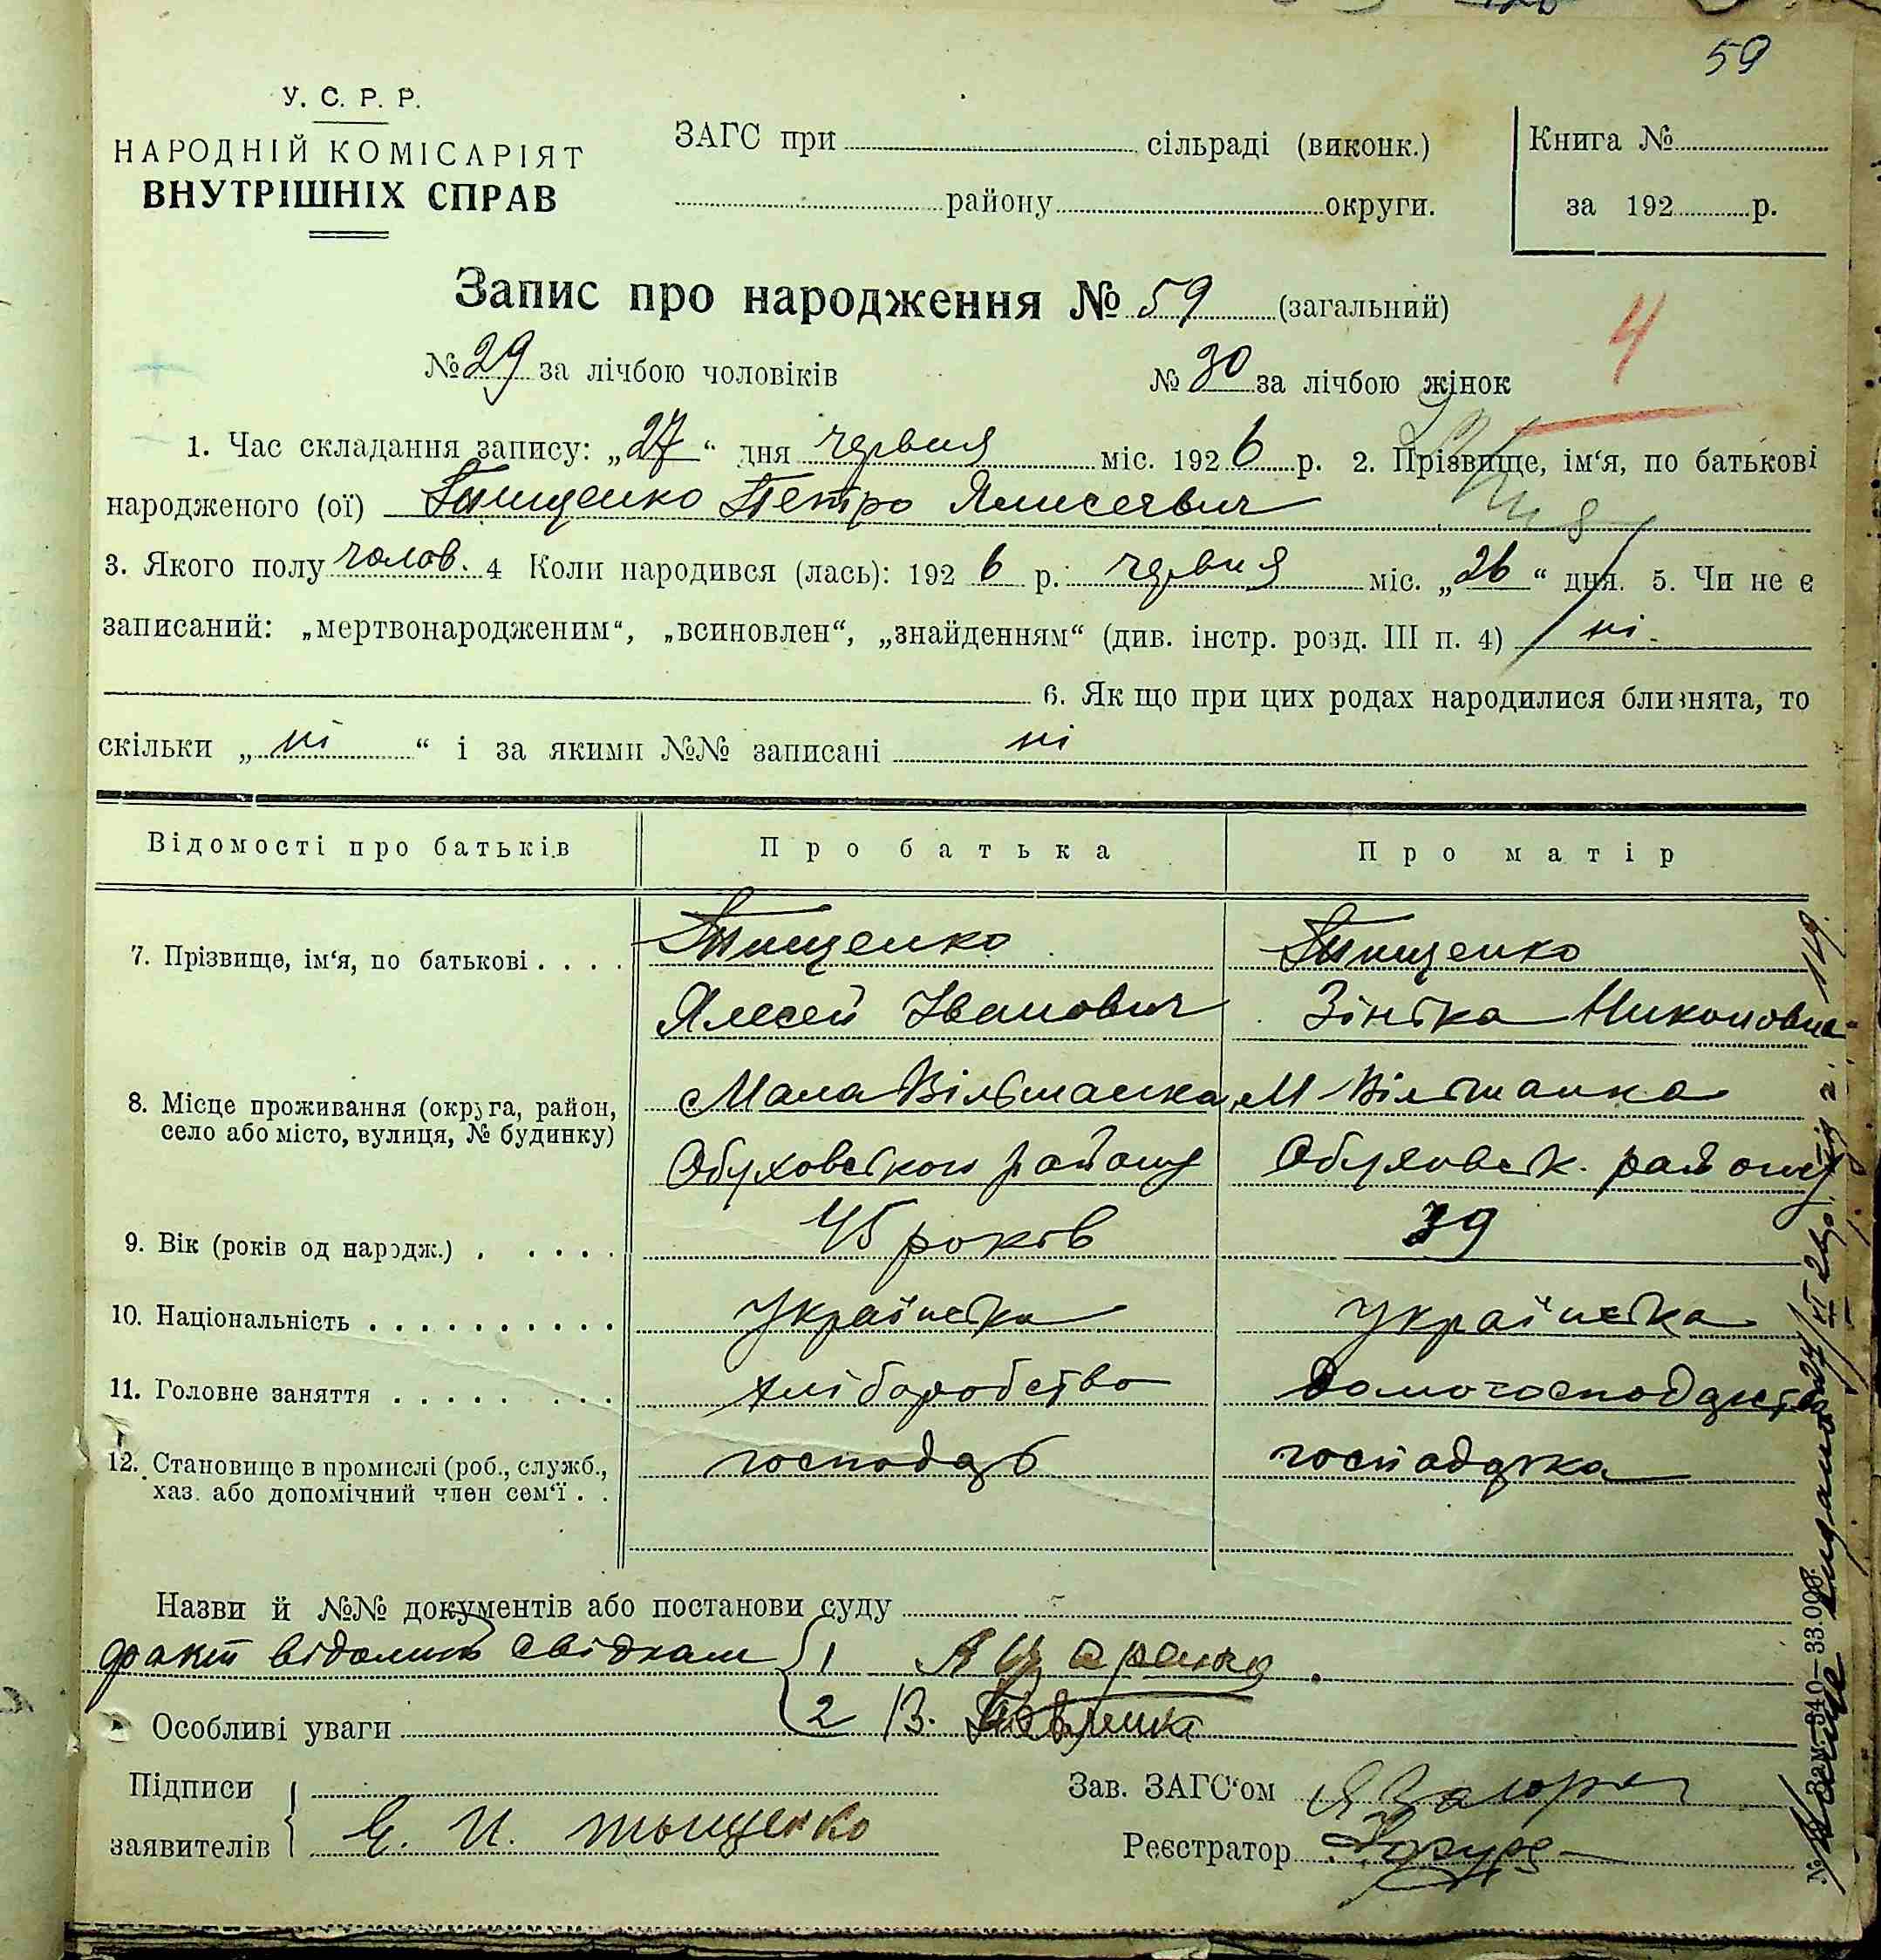 59
У. С. Р. Р.
НАРОДНІЙ КОМІСАРІЯТ
ВНУТРІШНІХ СПРАВ
ЗАГС при сільраді (виконк.)
району округи.
Книга №
за 192 р.
Запис про народження № 59 (загальний)
4
№ 29 за лічбою чоловіків № 30 за лічбою жінок
1. Час складання запису: „27“ дня червня міс. 1926 р. 2. Прізвище, ім‘я, по батькові
народженого (ої) Тищенко Петро Ялисеєвич
3. Якого полу чолов. 4 Коли народився (лась): 1926 р. червня міс. „26“ дня. 5. Чи не є
записаний: „мертвонародженим“, „всиновлен“, „знайденням“ (див. інстр. розд. III п. 4) ні.
6. Як що при цих родах народилися близнята, то
скільки „ні“ і за якими №№ записані ні
Відомості про батьків Про батька Про матір
7. Прізвище, ім‘я, по батькові . . . . Тищенко Тищенко
Ялесей Іванович Зінька Николовна
8. Місце проживання (округа, район, Мала Вільшанка М Вільшанка
село або місто, вулиця, № будинку)
Обуховського району Обуховськ. району
9. Вік (років од народж.) . . . . . 45 років 39
10. Національність . . . . . . . . . . Українська Українська
11. Головне заняття . . . . . . . . . хліборобство домогосподарство
12. Становище в промислі (роб., служб., господарь господарка
хаз. або допомічний член сем‘ї . .
Назви й №№ документів або постанови суду
факт відомий свідкам 1 Я
Особливі уваги 2 В.
Підписи
заявителів Є. И. тыщенко
Зав. ЗАГС‘ом
Реєстратор
№ Зам. 340—33.000.